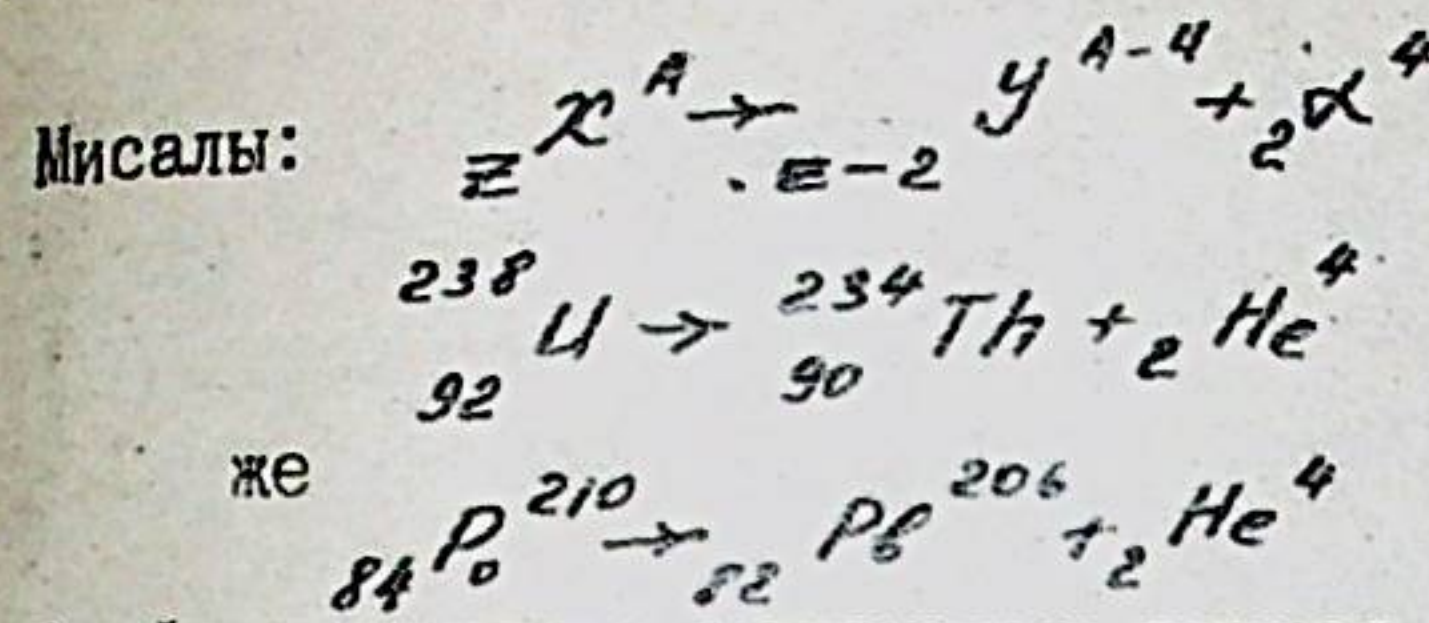 Мисалы: zXᴬ → z-2Yᴬ⁻⁴ + ₂α⁴
²³⁸₉₂U → ²³⁴₉₀Th + ₂He⁴
же
₈₄Po²¹⁰ → ₈₂Pb²⁰⁶ + ₂He⁴